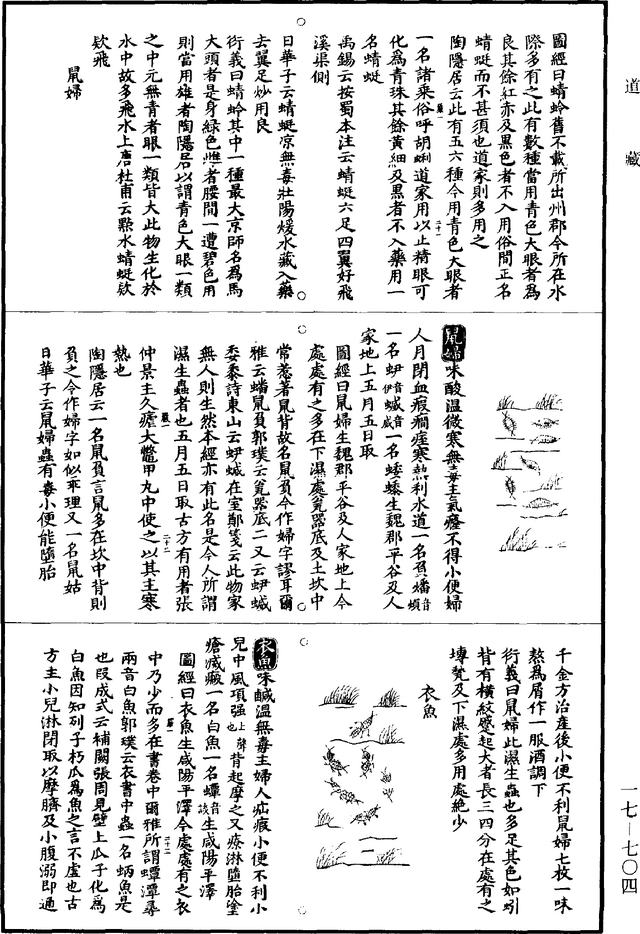 道藏
圖經曰蜻蛉舊不載所出州郡今所在水
際多有之此有數種當用青色大眼者為
良其餘紅赤及黑色者不入用俗間正名
蜻蜓而不甚須也道家則多用之
陶隱居云此有五六種今用青色大眼者
一名諸乘俗呼胡蜊道家用以止精眼可
化為青珠其餘黃細及黑者不入藥用一
名蜻蜓
禹錫云按蜀本注云蜻蜓六足四翼好飛
溪渠側
日華子云蜻蜓涼無毒壯陽煖水藏入藥
去翼足炒用良
衍義曰蜻蛉其中一種最大京師名為馬
大頭者是身綠色雌者腰間一遭碧色用
則當用雄者陶隱居以謂青色大眼一類
之中元無青者眼一類皆大此物生化於
水中故多飛水上唐杜甫云點水蜻蜓欵
欵飛
鼠婦
鼠婦味酸溫微寒無毒主氣癃不得小便婦
人月閉血瘕癇痓寒熱利水道一名負蟠音煩
一名蛜伊音蝛音威一名蜲𧐖生魏郡平谷及人
家地上五月五日取
圖經曰鼠婦生魏郡平谷及人家地上今
處處有之多在下濕處瓮器底及土坎中
常惹著鼠背故名鼠負今作婦字謬耳爾
雅云蟠鼠負郭璞云瓮器底二又云蛜蝛
委黍詩東山云蛜蝛在室鄭箋云此物家
無人則生然本經亦有此名是今人所謂
濕生蟲者也五月五日取古方有用者張
仲景主久瘧大鼈甲丸中使之以其主寒
熱也
陶隱居云一名鼠負言鼠多在坎中背則
負之今作婦字如似乖理又一名鼠姑
日華子云鼠婦蟲有毒小便能墮胎
千金方治產後小便不利鼠婦七枚一味
熬為屑作一服酒調下
衍義曰鼠婦此濕生蟲也多足其色如蚓
背有橫紋蹙起大者長三四分在處有之
塼甃及下濕處多用處絶少
衣魚
衣魚味鹹溫無毒主婦人疝瘕小便不利小
兒中風項强上聲也背起摩之又療淋墮胎塗
瘡滅瘢一名白魚一名蟫音談生咸陽平澤
圖經曰衣魚生咸陽平澤今處處有之衣
中乃少而多在書卷中爾雅所謂蟫潭尋
兩音白魚郭璞云衣書中蟲一名蛃魚是
也段成式云補闕張周見壁上瓜子化為
白魚因知列子朽瓜為魚之言不虛也古
方主小兒淋閉取以摩臍及小腹溺即通
一七—七〇四